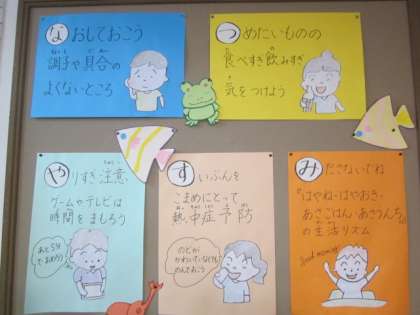 なおしておこう
調子や具合の
よくないところ
つめたいものの
食べすぎ飲みすぎ
気をつけよう
やりすぎ注意
ゲームやテレビは
時間をまもろう
あと5分
でおわろう
すいぶんを
こまめにとって
熱中症予防
のどが
かわいていなくても
のんでおこう
みださないでね
"はやね・はやおき・
あさごはん・あさうんち"
の生活リズム
Good morning